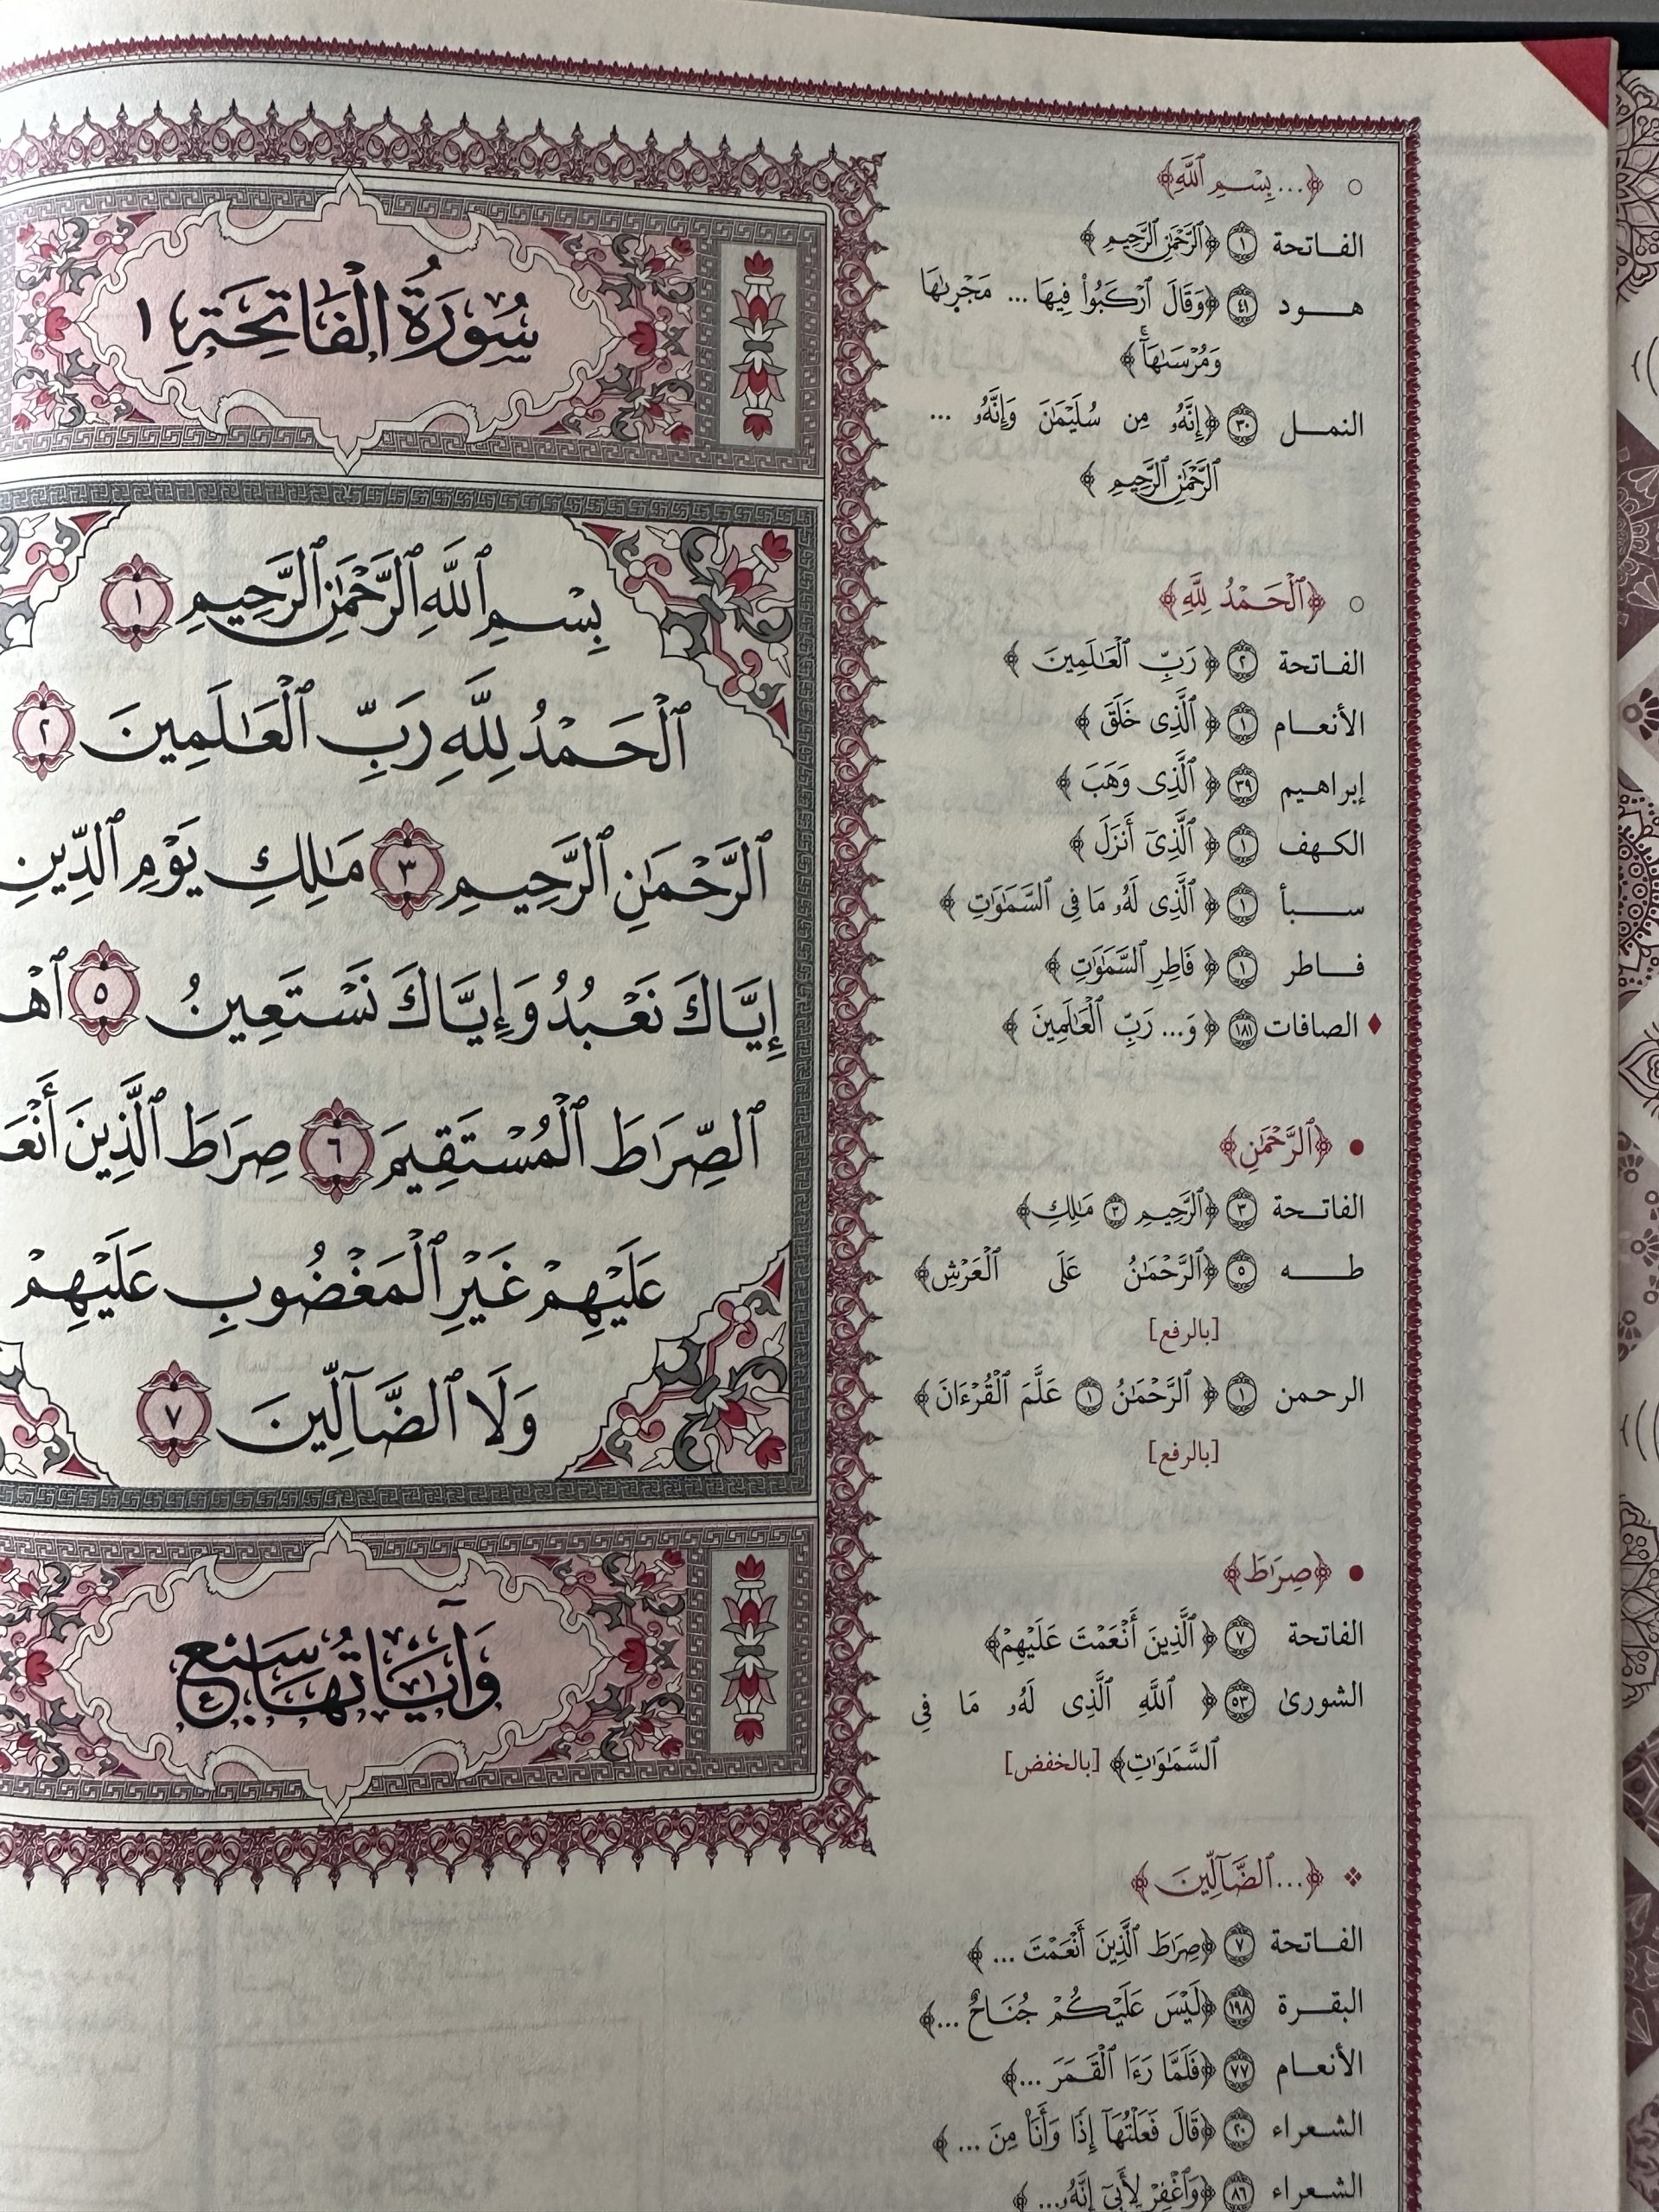 سُورَةُ الْفَاتِحَةِ ١
بِسْمِ ٱللَّهِ ٱلرَّحْمَٰنِ ٱلرَّحِيمِ ١
ٱلْحَمْدُ لِلَّهِ رَبِّ ٱلْعَٰلَمِينَ ٢
ٱلرَّحْمَٰنِ ٱلرَّحِيمِ ٣ مَٰلِكِ يَوْمِ ٱلدِّينِ
إِيَّاكَ نَعْبُدُ وَإِيَّاكَ نَسْتَعِينُ ٥ ٱهْ
ٱلصِّرَٰطَ ٱلْمُسْتَقِيمَ ٦ صِرَٰطَ ٱلَّذِينَ أَنْعَ
عَلَيْهِمْ غَيْرِ ٱلْمَغْضُوبِ عَلَيْهِمْ
وَلَا ٱلضَّآلِّينَ ٧
وَآيَاتُهَا سَبْعٌ
○ ﴿... بِسْمِ ٱللَّهِ﴾
الفاتحة ١ ﴿ٱلرَّحْمَٰنِ ٱلرَّحِيمِ﴾
هود ٤١ ﴿وَقَالَ ٱرْكَبُوا۟ فِيهَا ... مَجْر۪ىٰهَا
وَمُرْسَىٰهَآۚ﴾
النمل ٣٠ ﴿إِنَّهُۥ مِن سُلَيْمَٰنَ وَإِنَّهُۥ ...
ٱلرَّحْمَٰنِ ٱلرَّحِيمِ﴾
○ ﴿ٱلْحَمْدُ لِلَّهِ﴾
الفاتحة ٢ ﴿رَبِّ ٱلْعَٰلَمِينَ﴾
الأنعام ١ ﴿ٱلَّذِى خَلَقَ﴾
إبراهيم ٣٩ ﴿ٱلَّذِى وَهَبَ﴾
الكهف ١ ﴿ٱلَّذِىٓ أَنزَلَ﴾
سبأ ١ ﴿ٱلَّذِى لَهُۥ مَا فِى ٱلسَّمَٰوَٰتِ﴾
فاطر ١ ﴿فَاطِرِ ٱلسَّمَٰوَٰتِ﴾
♦ الصافات ١٨١ ﴿وَ... رَبِّ ٱلْعَٰلَمِينَ﴾
● ﴿ٱلرَّحْمَٰنِ﴾
الفاتحة ٣ ﴿ٱلرَّحِيمِ ٣ مَٰلِكِ﴾
طه ٥ ﴿ٱلرَّحْمَٰنُ عَلَى ٱلْعَرْشِ﴾
[بالرفع]
الرحمن ١ ﴿ٱلرَّحْمَٰنُ ١ عَلَّمَ ٱلْقُرْءَانَ﴾
[بالرفع]
● ﴿صِرَٰطَ﴾
الفاتحة ٧ ﴿ٱلَّذِينَ أَنْعَمْتَ عَلَيْهِمْ﴾
الشورىٰ ٥٣ ﴿ٱللَّهِ ٱلَّذِى لَهُۥ مَا فِى
ٱلسَّمَٰوَٰتِ﴾ [بالخفض]
❖ ﴿...ٱلضَّآلِّينَ﴾
الفاتحة ٧ ﴿صِرَٰطَ ٱلَّذِينَ أَنْعَمْتَ ...﴾
البقرة ١٩٨ ﴿لَيْسَ عَلَيْكُمْ جُنَاحٌ ...﴾
الأنعام ٧٧ ﴿فَلَمَّا رَءَا ٱلْقَمَرَ ...﴾
الشعراء ٢٠ ﴿قَالَ فَعَلْتُهَآ إِذًا وَأَنَا۠ مِنَ ...﴾
الشعراء ٨٦ ﴿وَٱغْفِرْ لِأَبِىٓ إِنَّهُۥ ...﴾